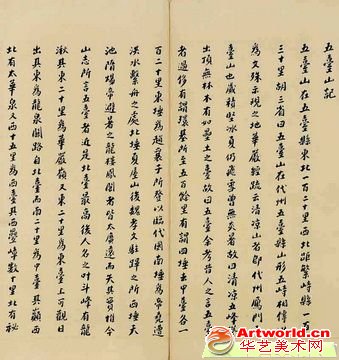 五臺山記
五臺山在五臺縣東北一百二十里西北距繁峙縣一
三十里胡三省曰五臺山在代州五臺縣山形五峙相傳
為文殊示現之地華嚴經疏云清涼山者即代州鴈門
臺山也歲積堅冰夏仍飛雪曾無炎暑故曰清涼五峰
出頂無林木有如壘土之臺故曰五臺余考昔人之言五臺
者過侈有謂環基所至五百餘里有謂四埵去中臺各一
百二十里東埵為趙襄子所登以臨代國南埵為帝堯遭
洪水繫舟之處北埵夏屋山後魏孝文駐蹕之所西埵天
池隋煬帝避暑之龍樓鳳闕者皆太廣遠而失其實惟今
山志所言五臺者近是北臺最高後人名之叶斗峰有龍
湫其東二十里為華嚴嶺又東二十里為東臺上可觀日
出其東為龍泉關路自北臺而南二十里為中臺其巔西
北有太華泉又西十五里為西臺其西疊嶂數十里北有秘
Artworld.cn
华艺美术网